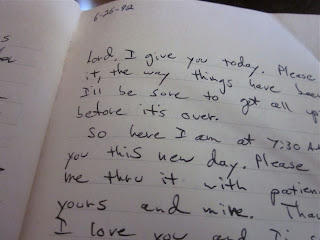 6-25-92
Lord, I give you today. Please
it, the way things have been
I'll be sure to get all up
before it's over.
So here I am at 7:30 A
you this new day. Please
me thru it with patien
yours and mine. Than
I love you and I'